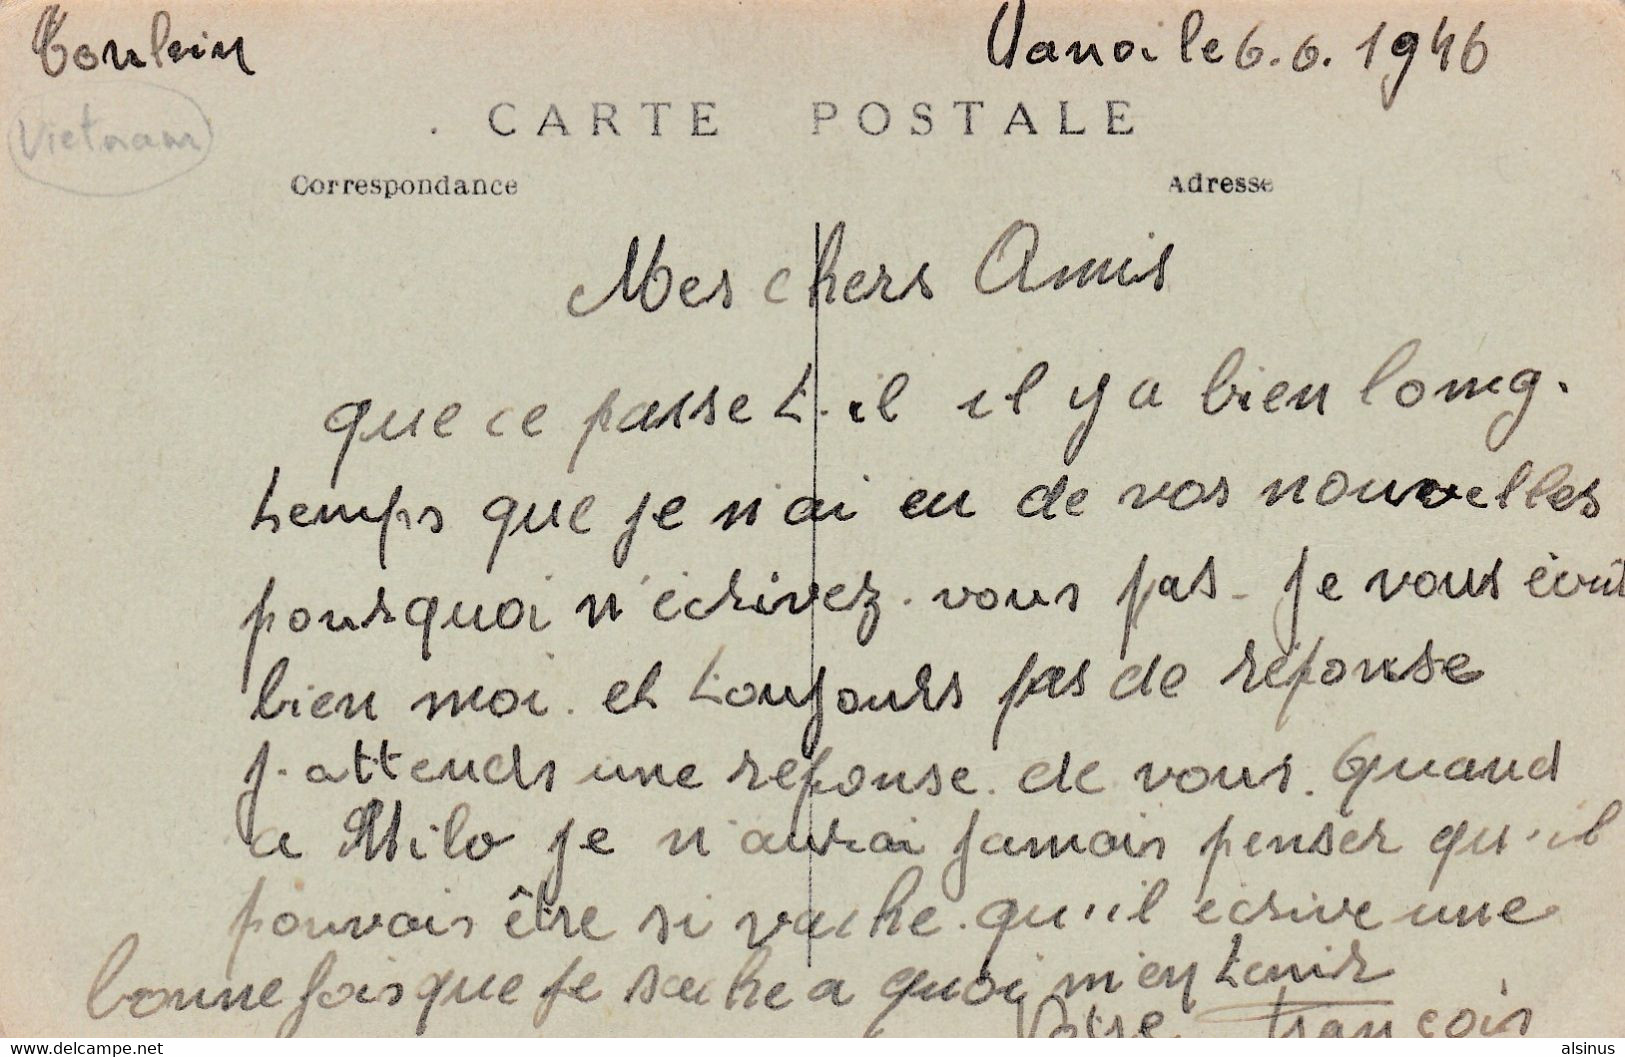 Hanoi le 6.6.1946
Vietnam
CARTE POSTALE
Correspondance Adresse
Mes chers Amis
que ce passe t-il il y a bien lomg-
temps que je n'ai eu de vos nouvelles
pourquoi n'écrivez-vous pas - Je vous écrit
bien moi. et toujours pas de réponse
j'attends une réponse de vous. Quand
a Milo je n'aurai jamais penser qu'il
pouvais être si vache. qu'il écrive une
bonne fois que je sache a quoi m'en tenir
Votre François
alsinus